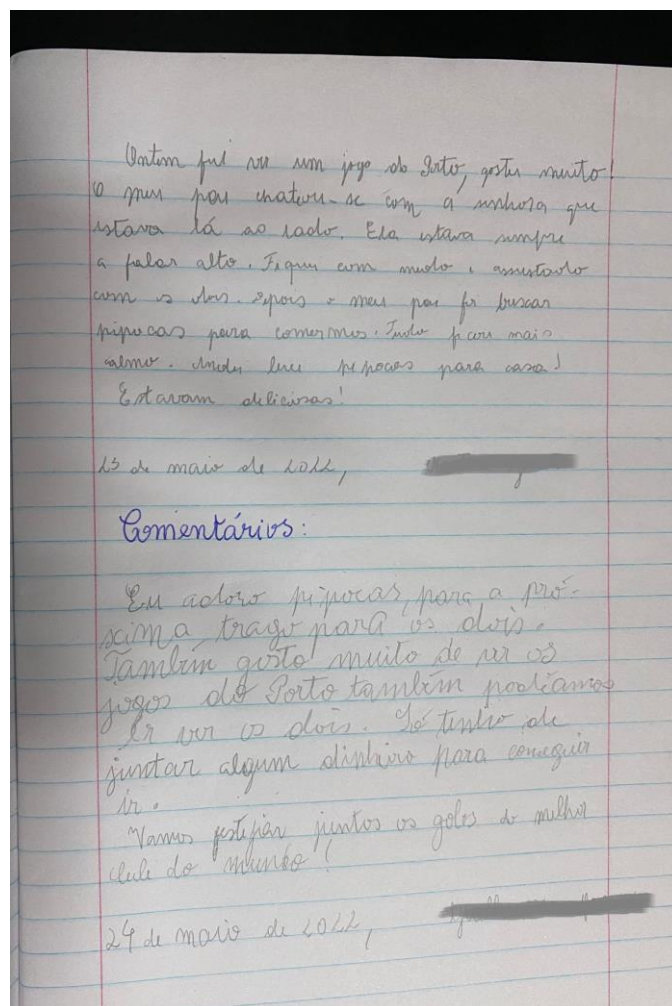 Ontem fui ver um jogo do Porto, gostei muito!
O meu pai chateou-se com a senhora que
estava lá ao lado. Ela estava sempre
a falar alto. Fiquei com medo e assustado
com os dois. Depois o meu pai foi buscar
pipocas para comermos. Tudo ficou mais
calmo. Ainda levei pipocas para casa!
Estavam deliciosas!
23 de maio de 2022,
Comentários:
Eu adoro pipocas, para a pró-
xima trago para os dois.
Também gosto muito de ver os
jogos do Porto também podíamos
ir ver os dois. Só tenho de
juntar algum dinheiro para conseguir
ir.
Vamos festejar juntos os golos do melhor
clube do mundo!
24 de maio de 2022,